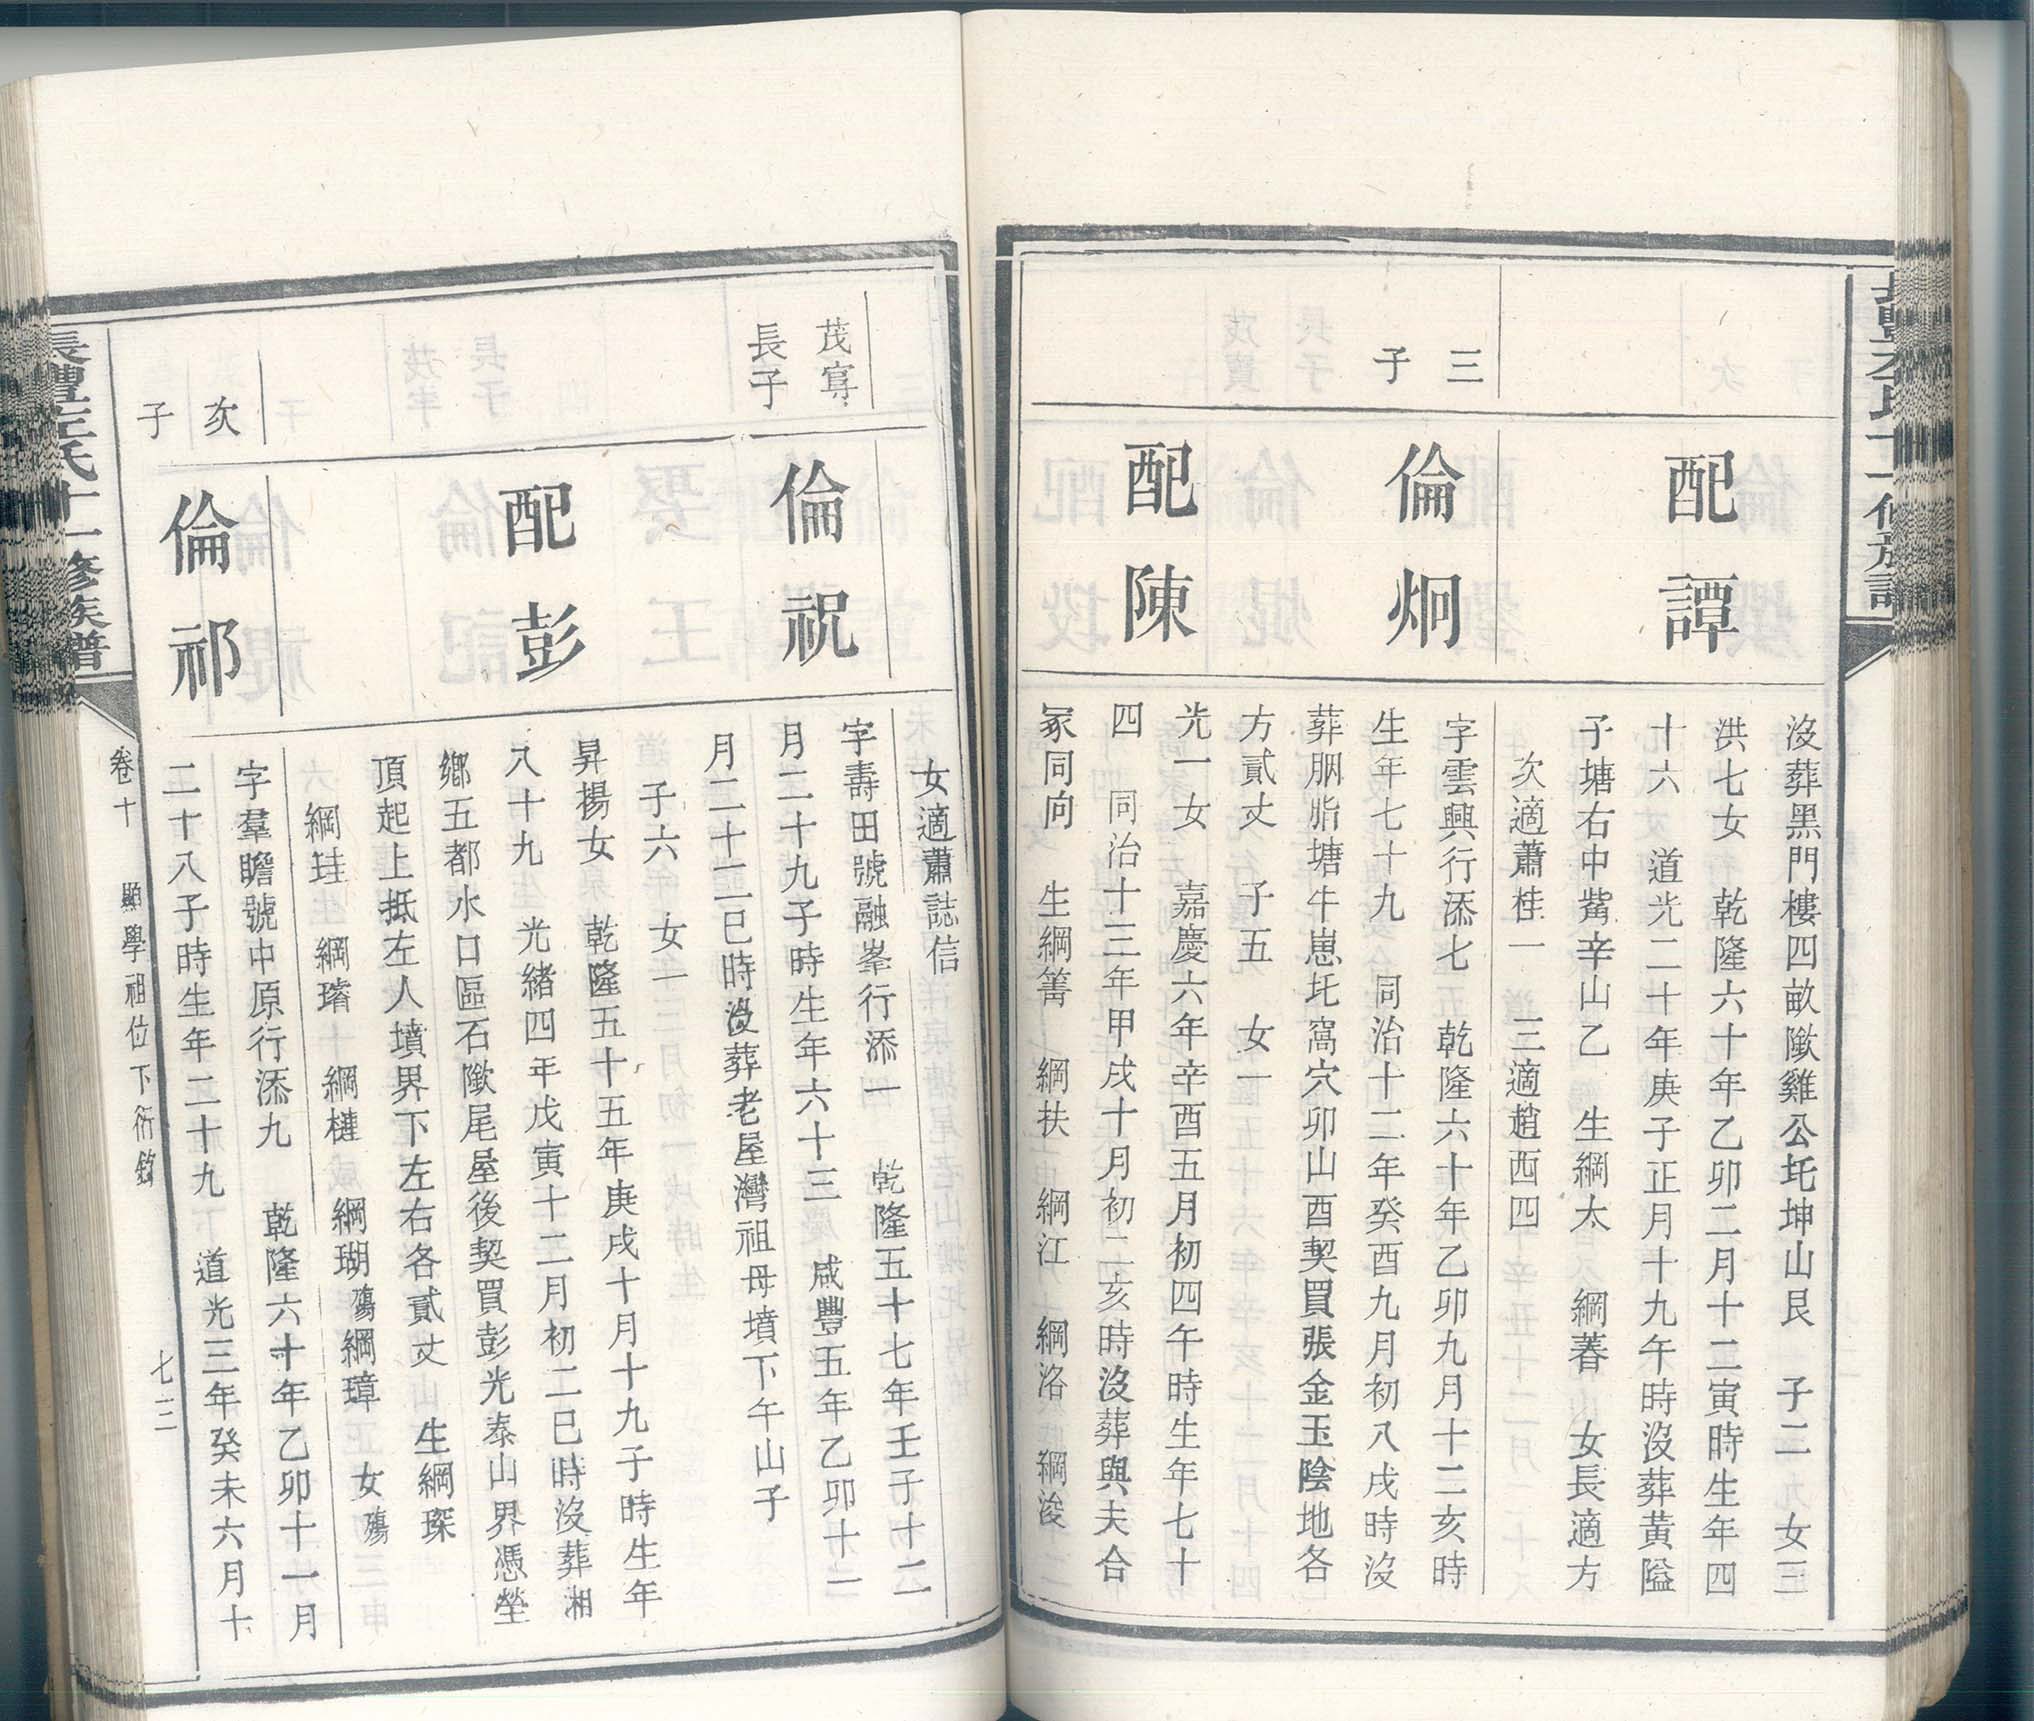 沒葬黑門樓四畝墩雞公圫坤山艮 子二 女三
配譚
洪七女 乾隆六十年乙卯二月十二寅時生年四
十六 道光二十年庚子正月十九午時沒葬黃隘
子塘右中觜辛山乙 生綱太 綱萶 女長適方
次適蕭桂一 三適趙西四
三
子
倫炯
字雲興行添七 乾隆六十年乙卯九月十二亥時
生年七十九 同治十二年癸酉九月初八戌時沒
葬胭脂塘牛崽圫窩穴卯山酉契買張金玉陰地各
方貳丈 子五 女一
配陳
光一女 嘉慶六年辛酉五月初四午時生年七十
四 同治十三年甲戌十月初二亥時沒葬與夫合
冢同向 生綱箐 綱扶 綱江 綱洛 綱浚
女適蕭誌信
茂寫
長子
倫祝
字壽田號融峯行添一 乾隆五十七年壬子十二
月二十九子時生年六十三 咸豐五年乙卯十二
月二十二巳時沒葬老屋灣祖母墳下午山子
子六 女一
配彭
昇揚女 乾隆五十五年庚戌十月十九子時生年
八十九 光緒四年戊寅十二月初二巳時沒葬湘
鄉五都水口區石墩尾屋後契買彭光泰山界憑塋
頂起上抵左人墳界下左右各貳丈 生綱琛
綱珪 綱璿 綱槤 綱瑚殤 綱璋 女殤
次
子
倫祁
字羣瞻號中原行添九 乾隆六十年乙卯十一月
二十八子時生年二十九 道光三年癸未六月十
長澧左氏十一修族譜
卷十 顯學祖位下衍 七三